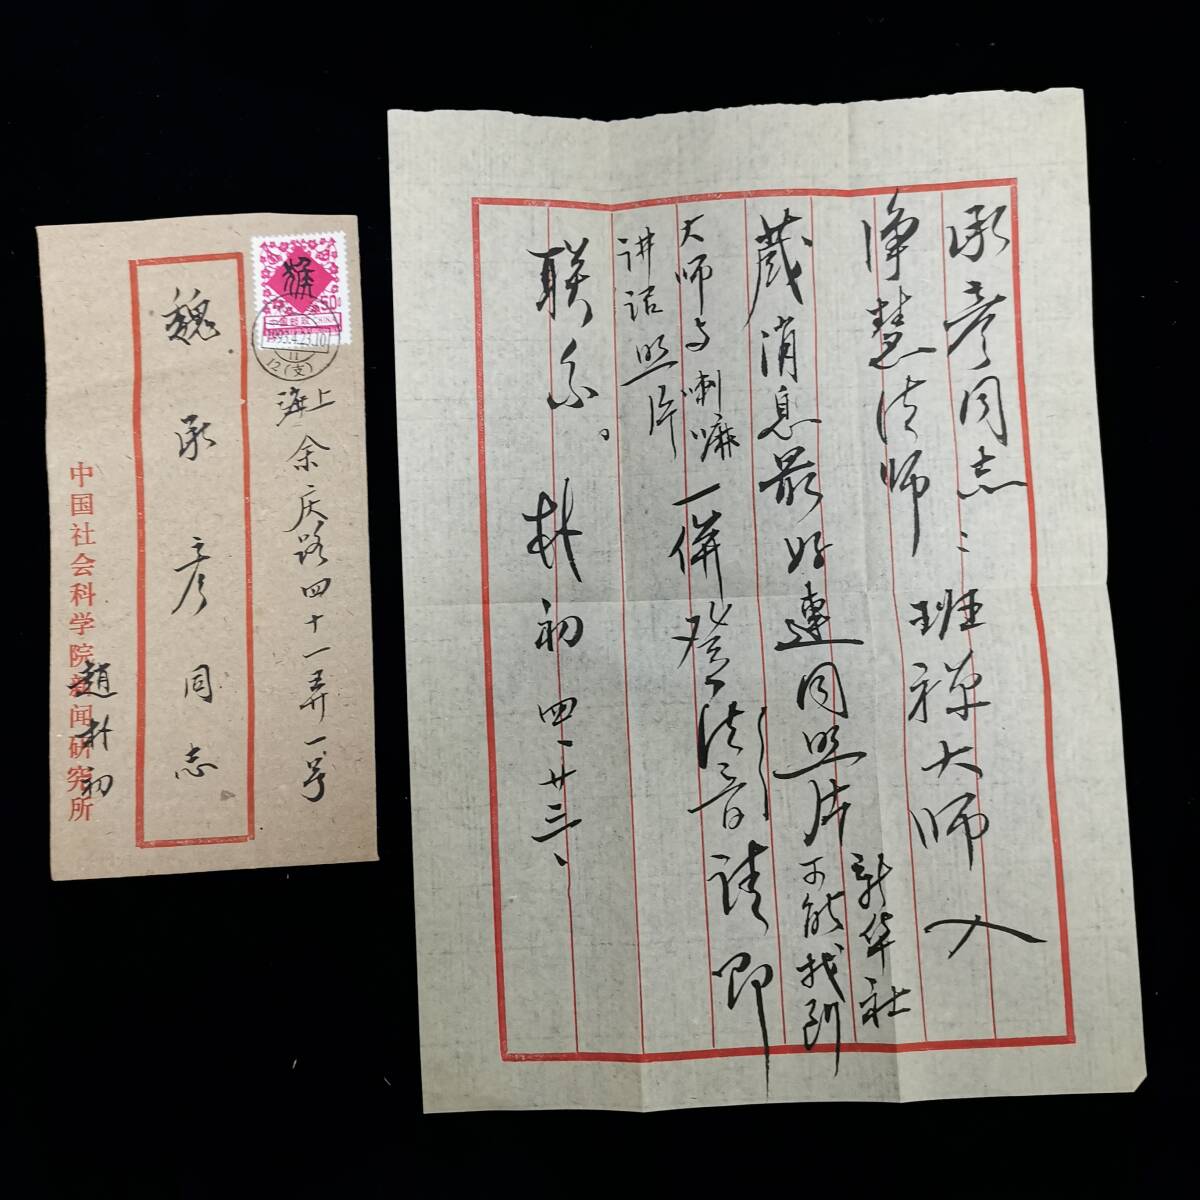 猴
50分
中国邮政
CHINA
12(支)
上海
余庆路四十一弄一号
魏承彦同志
中国社会科学院新闻研究所
趙朴初
承彦同志:班禅大师入
净慧法师
藏消息最好連同照片
新华社
可能找到
大师与喇嘛
讲话照片
一併登法音请即
联系。朴初四、廿三、